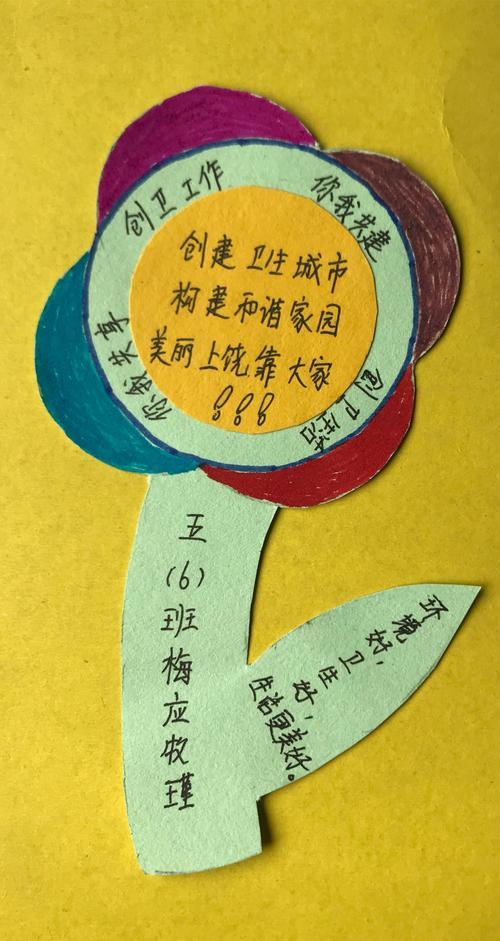 创卫工作
你我共建
创卫生活
你我共享
创建卫生城市
构建和谐家园
美丽上饶靠大家
!!!
五
(6)
班梅应牧瑾
环境好,
卫生好,
生活更美好。